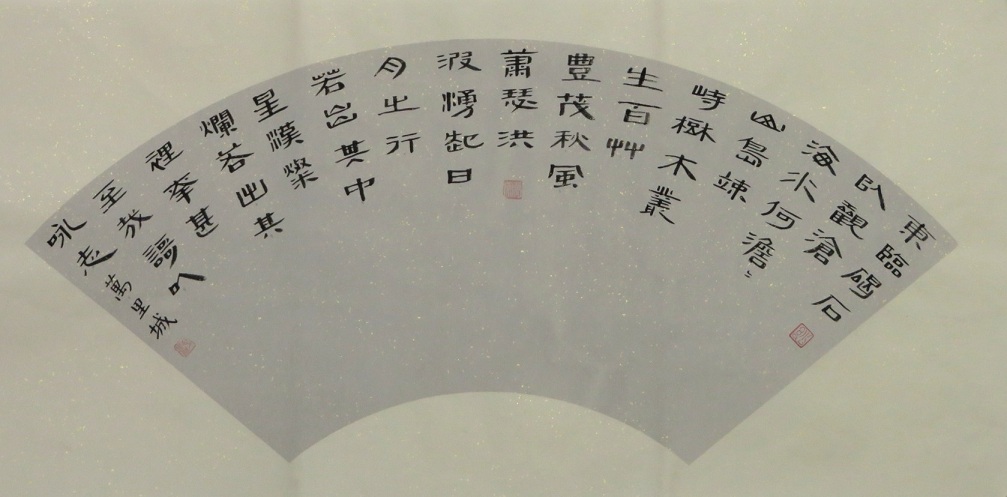 東臨碣石
以觀滄
海水何澹〻
山島竦
峙樹木叢
生百艸
豊茂秋風
蕭瑟洪
波湧起日
月之行
若出其中
星漢燦
爛若出其
裡幸甚
至哉謌以
咏志
萬里城